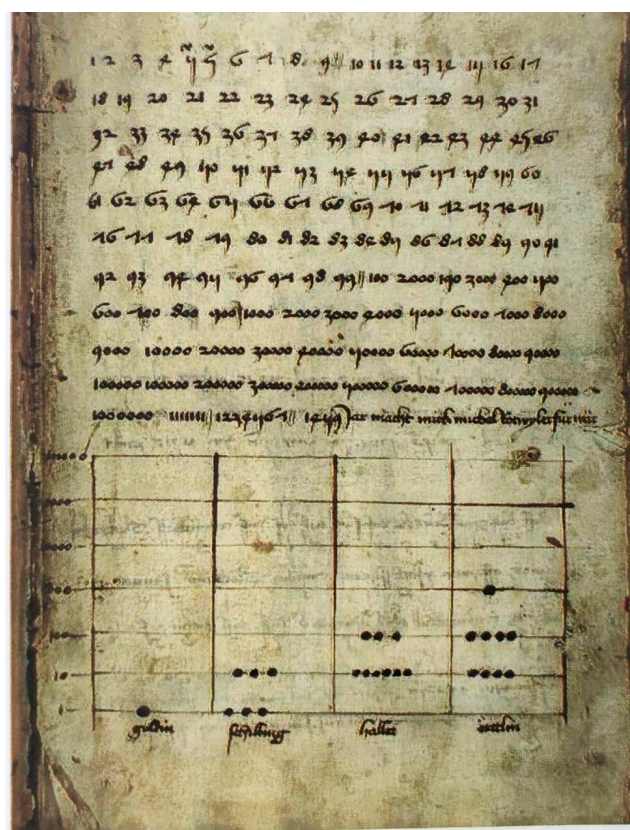 1 2 3 4 5 5 6 7 8 9 // 10 11 12 13 14 15 16 17
18 19 20 21 22 23 24 25 26 27 28 29 30 31
32 33 34 35 36 37 38 39 40 41 42 43 44 45 46
47 48 49 50 51 52 53 54 55 56 57 58 59 60
61 62 63 64 65 66 67 68 69 70 71 72 73 74 75
76 77 78 79 80 81 82 83 84 85 86 87 88 89 90 91
92 93 94 95 96 97 98 99 // 100 400 500
600 700 800 900 | 1000 2000 3000 4000 5000 6000 7000 8000
9000 10000 20000 30000 40000 50000 60000 70000 80000 90000
100000 100000 200000 300000 400000 500000 600000 700000 800000 900000
1000000 jar macht mich michel
guldin schilling haller örtlin